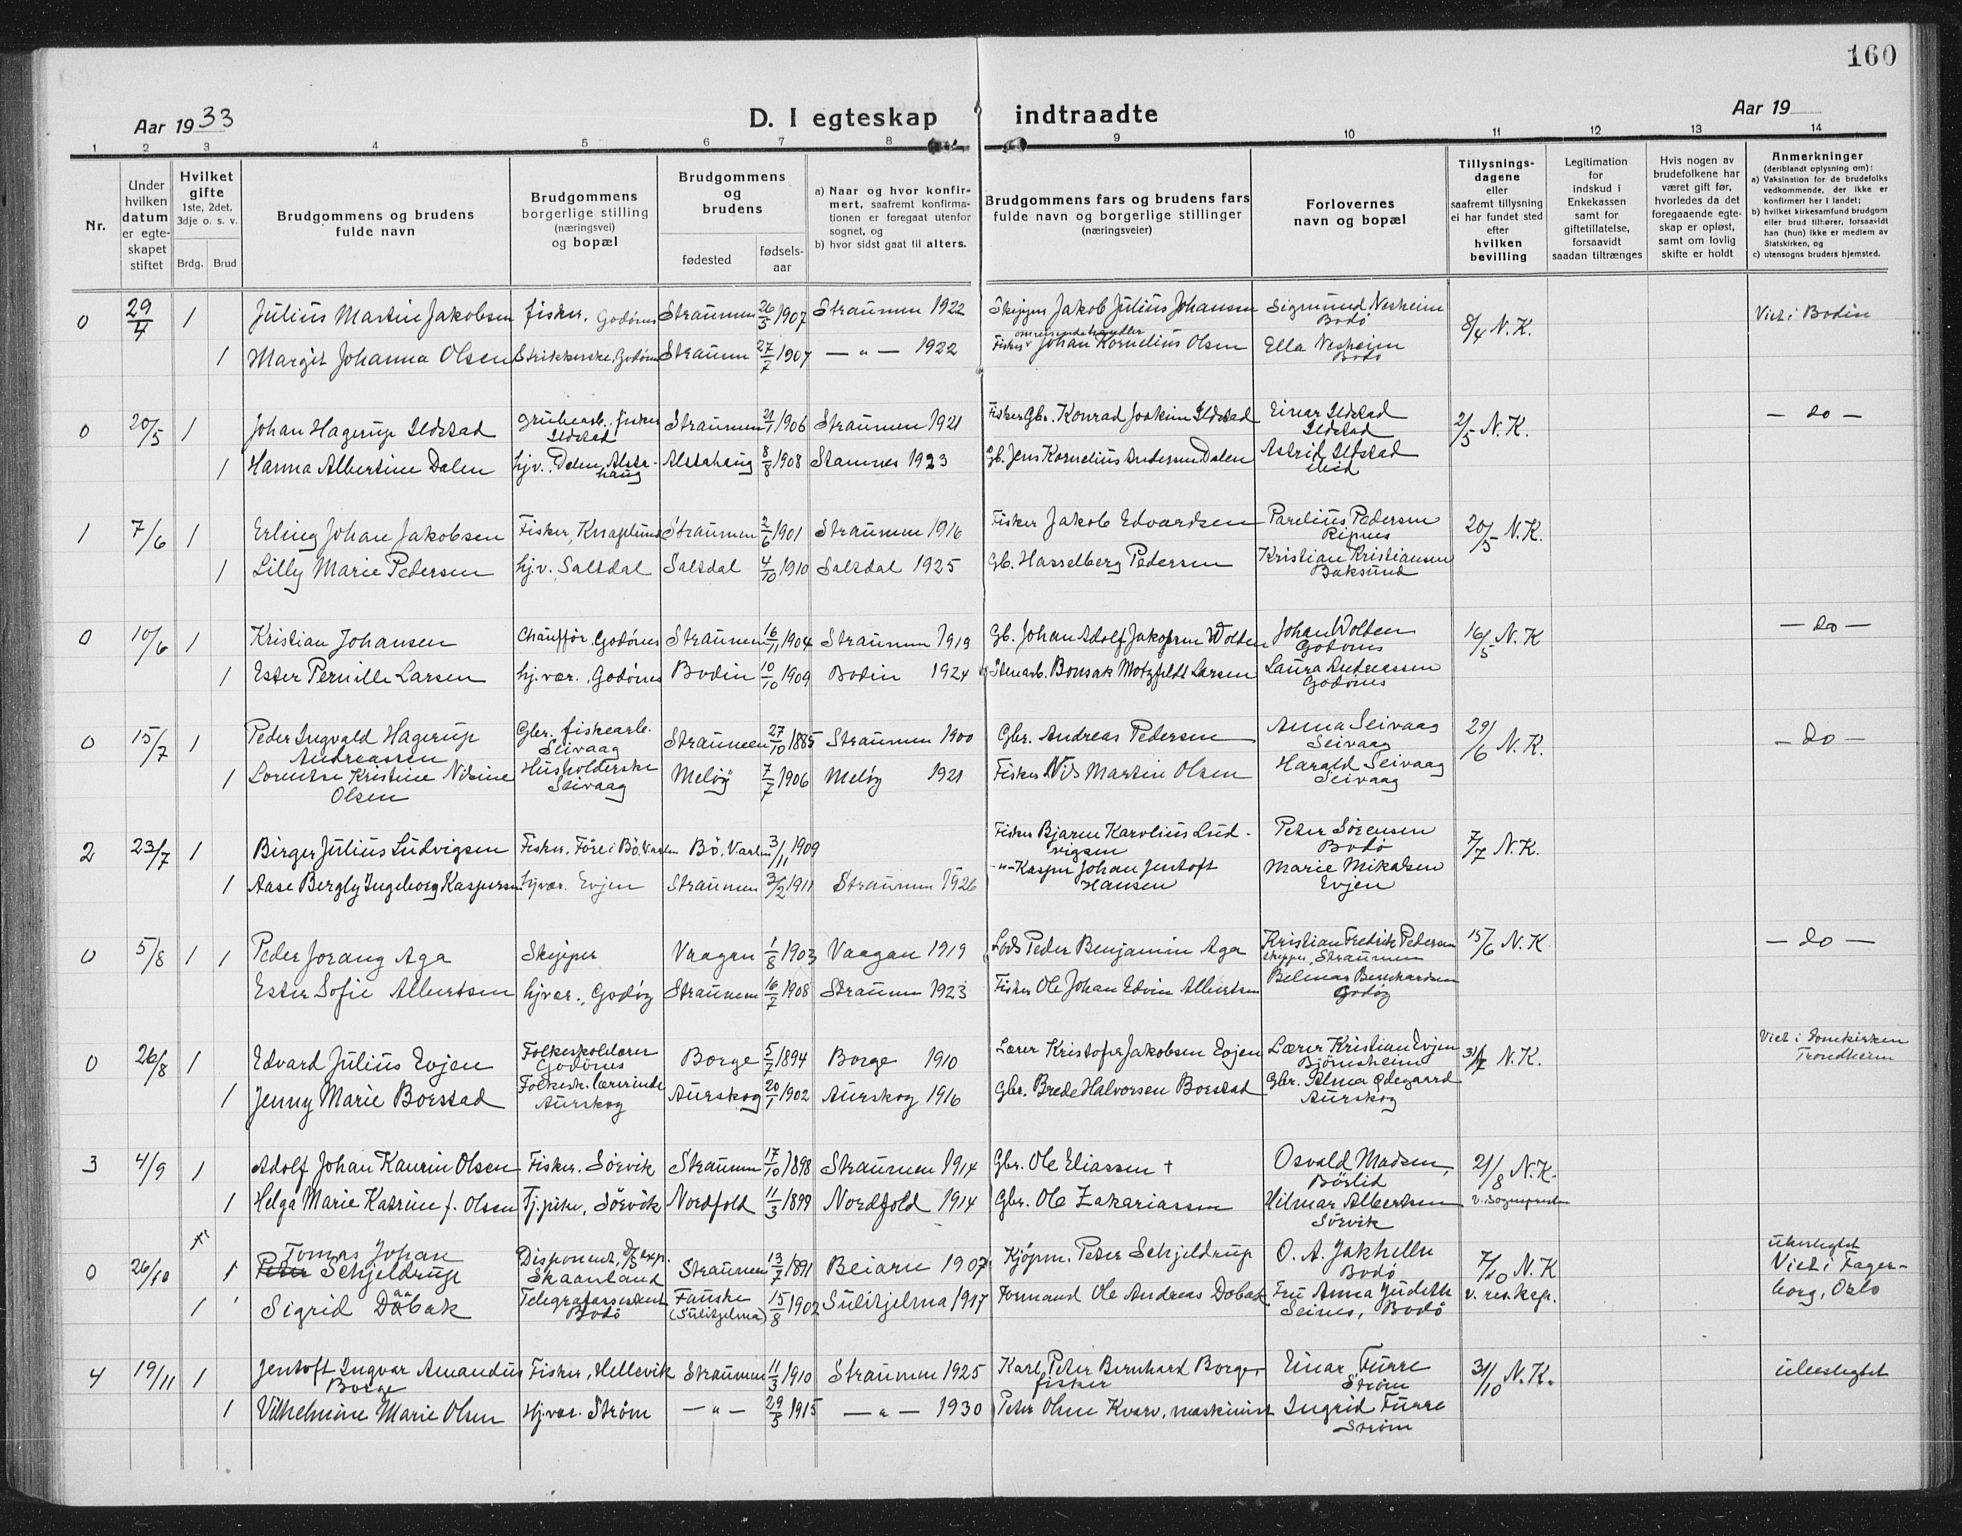 160
Aar 1933
D. I egteskap indtraadte
Aar 19
1 2 3 4 5 6 7 8 9 10 11 12 13 14
Nr.
Under hvilken datum er egteskapet stiftet
Hvilket gifte
1ste, 2det, 3dje o. s. v.
Brdg. Brud
Brudgommens og brudens fulde navn
Brudgommens borgerlige stilling (næringsvei) og bopæl
Brudgommens og brudens
fødested
fødselsaar
a) Naar og hvor konfirmert, saafremt konfirmationen er foregaat utenfor sognet, og
b) hvor sidst gaat til alters.
Brudgommens fars og brudens fars fulde navn og borgerlige stillinger (næringsveier)
Forlovernes navn og bopæl
Tillysningsdagene eller saafremt tillysning ei har fundet sted efter hvilken bevilling
Legitimation for indskud i Enkekassen samt for giftetillatelse, forsaavidt saadan tiltrænges
Hvis nogen av brudefolkene har været gift før, hvorledes da det foregaaende egteskap er opløst, samt om lovlig skifte er holdt
Anmerkninger
(deriblandt oplysning om):
a) Vaksination for de brudefolks vedkommende, der ikke er konfirmert her i landet;
b) hvilket kirkesamfund brudgom eller brud tilhører, forsaavidt han (hun) ikke er medlem av Statskirken, og
c) utensogns bruders hjemsted.
0 29/4 1 Julius Martin Jakobsen fisker, Godønes Straumen 26/5 1907 Straumen 1922 Skipper Jakob Julius Johansen Sigmund Nesheim Bodø 8/4 N.K. Viet i Bodin
1 Margit Johanna Olsen Strikkerske, Godønes Straumen 27/7 1907 — " — 1922 Fisker Johan Kornelius Olsen Ella Nesheim Bodø
0 20/5 1 Johan Hagerup Ildstad grubearb., fisker Ildstad Straumen 21/1 1906 Straumen 1921 Fisker Gbr. Konrad Joakim Ildstad Einar Ildstad Ildstad 2/5 N.K. — do —
1 Hanna Albertine Dalen hjv. Dalen, Alstahaug Alstahaug 8/8 1908 Stamnes 1923 Gb. Jens Kornelius Andersen Dalen Astrid Ildstad ibid
1 7/6 1 Erling Johan Jakobsen Fisker, Knaplund Straumen 2/6 1901 Straumen 1916 Fisker Jakob Edvardsen Parelius Pedersen Ripnes 20/5 N.K.
1 Lilly Marie Pedersen hj.v. Saltdal Saltdal 4/10 1910 Saltdal 1925 Gb. Hasselberg Pedersen Kristian Kristiansen Baksund
0 10/6 1 Kristian Johansen Chauffør, Godønes Straumen 16/11 1904 Straumen 1919 Gb. Johan Adolf Jakobsen Wolten Johan Wolten Godønes 16/5 N.K — do —
1 Ester Pernille Larsen hj.vær., Godønes Bodin 10/10 1909 Bodin 1924 Stenarb. Bonsak Motzfeldt Larsen Laura Andreassen Godønes
0 15/7 1 Peder Ingvald Hagerup Andreassen Gbr. fiskearb. Seivaag Straumen 27/10 1885 Straumen 1900 Gbr. Andreas Pedersen Anna Seivaag Seivaag 29/6 N.K. — do —
1 Lorentse Kristine Nilsine Olsen Husholderske Seivaag Meløy 7/7 1906 Meløy 1921 Fisker Nils Martin Olsen Harald Seivaag Seivaag
2 23/7 1 Birger Julius Ludvigsen Fisker. Føre i Bø. Vesterålen Bø. 3/11 1909 Fisker Bjarne Karolius Ludvigsen Peter Sørensen Bodø 7/7 N.K.
1 Aase Bergly Ingeborg Kaspersen hjvær. Evjen Straumen 3/2 1911 Straumen 1926 -"- Kasper Johan Jentoft Hansen Marie Mikalsen Evjen
0 5/8 1 1 Peder Jorang Aga Skipper Vaagan 1/8 1903 Vaagan 1919 Lods Peder Benjamin Aga Kristian Fredrik Pedersen skipper, Straumen 15/6 N.K. — do —
Ester Sofie Albertsen hjvær., Godøy Straumen 16/7 1908 Straumen 1923 Fisker Ole Johan Edvin Albertsen Belmar Bernhardsen Godøy
0 26/8 1 Edvard Julius Evjen Folkeskolelærer Godønes Borge 5/7 1894 Borge 1910 Lærer Kristofer Jakobsen Evjen Lærer Kristian Evjen Bjørnsheim 31/7 N.K. Viet i Domkirken Trondheim
1 Jenny Marie Borstad Folkesk. lærerinde Aurskog Aurskog 20/1 1902 Aurskog 1916 Gbr. Brede Halvorsen Borstad Gbr. Alma Ødegaard Aurskog
3 4/9 1 Adolf Johan Kaurin Olsen Fisker. Sørvik Straumen 17/10 1898 Straumen 1914 Gbr. Ole Eliassen + Osvald Madsen, Børlid 21/8 N.K. v. sogneprest
1 Helga Marie Katrine f. Olsen Tj.pike, Sørvik Nordfold 11/3 1899 Nordfold 1914 Gbr. Ole Zakariassen Hilmar Albertsen Sørvik
0 26/10 1 Tomas Johan Peter Schjeldrup Disponent, d/s exp. Skaanland Straumen 13/7 1891 Beiarn 1907 Kjøpm. Peter Schjeldrup O. A. Jakhelln Bodø 7/10 N.K. v. res. kap. ubeslegtet Viet i Fagerborg, Oslo
1 Sigrid Dobak Telegrafassistent Bodø Fauske (Sulitjelma) 15/8 1902 Sulitjelma 1917 Formand Ole Andreas Dobak Fru Anna Judith Seines, Bodø
4 19/11 1 Jentoft Ingvar Amandus Borge Fisker, Hellevik Straumen 11/3 1910 Straumen 1925 Karl Peter Bernhard Borge, fisker Einar Furre Strøm 31/10 N.K. ubeslegtet
1 Vilhelmine Marie Olsen Hj.vær. Strøm — " — 29/5 1915 — " — 1930 Peter Olsen Kvarv, maskinist Ingrid Furre Strøm